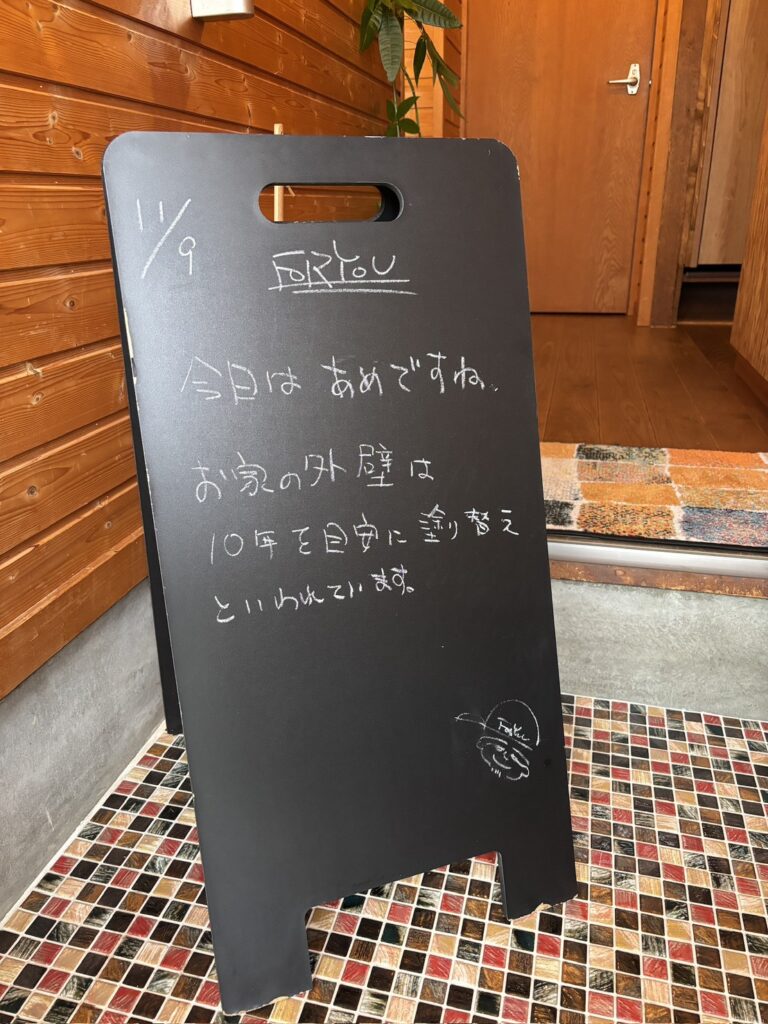 11/9
FORYOU
今日は あめですね。
お家の外壁は
10年を目安に塗り替え
といわれています。
ForYou